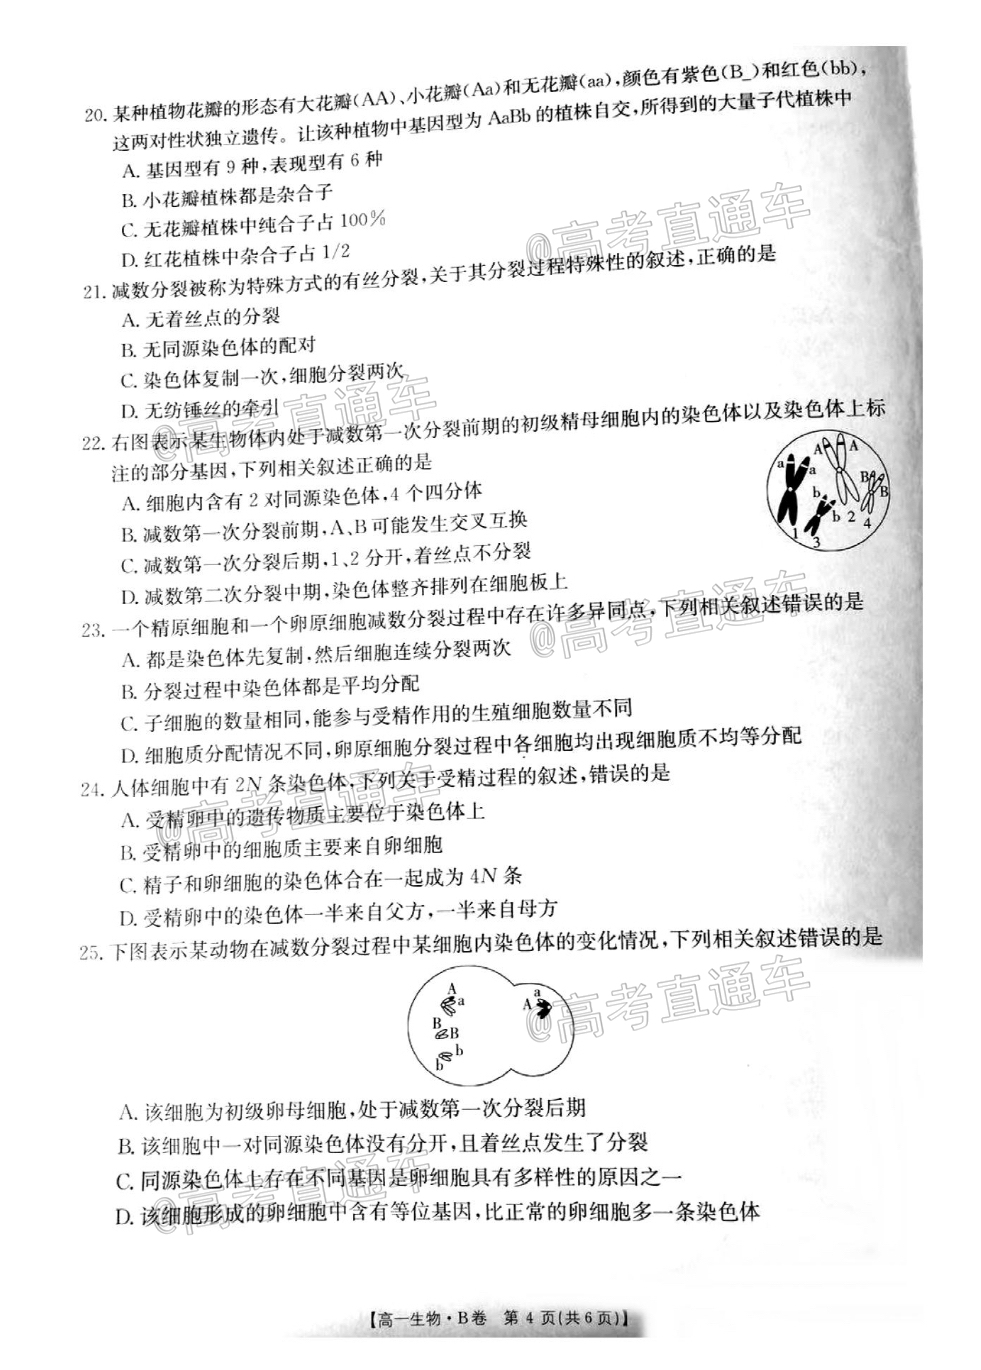 20. 某种植物花瓣的形态有大花瓣(AA)、小花瓣(Aa)和无花瓣(aa),颜色有紫色(B_)和红色(bb),
这两对性状独立遗传。让该种植物中基因型为 AaBb 的植株自交,所得到的大量子代植株中
A. 基因型有 9 种,表现型有 6 种
B. 小花瓣植株都是杂合子
C. 无花瓣植株中纯合子占 100%
D. 红花植株中杂合子占 1/2
@高考直通车
21. 减数分裂被称为特殊方式的有丝分裂,关于其分裂过程特殊性的叙述,正确的是
A. 无着丝点的分裂
B. 无同源染色体的配对
C. 染色体复制一次,细胞分裂两次
D. 无纺锤丝的牵引
@高考直通车
22. 右图表示某生物体内处于减数第一次分裂前期的初级精母细胞内的染色体以及染色体上标
注的部分基因,下列相关叙述正确的是
A. 细胞内含有 2 对同源染色体,4 个四分体
B. 减数第一次分裂前期,A、B 可能发生交叉互换
C. 减数第一次分裂后期,1、2 分开,着丝点不分裂
D. 减数第二次分裂中期,染色体整齐排列在细胞板上
a a A A
b b B B
1 2 3 4
23. 一个精原细胞和一个卵原细胞减数分裂过程中存在许多异同点,下列相关叙述错误的是
A. 都是染色体先复制,然后细胞连续分裂两次
B. 分裂过程中染色体都是平均分配
C. 子细胞的数量相同,能参与受精作用的生殖细胞数量不同
D. 细胞质分配情况不同,卵原细胞分裂过程中各细胞均出现细胞质不均等分配
@高考直通车
24. 人体细胞中有 2N 条染色体,下列关于受精过程的叙述,错误的是
A. 受精卵中的遗传物质主要位于染色体上
B. 受精卵中的细胞质主要来自卵细胞
C. 精子和卵细胞的染色体合在一起成为 4N 条
D. 受精卵中的染色体一半来自父方,一半来自母方
@高考直通车
25. 下图表示某动物在减数分裂过程中某细胞内染色体的变化情况,下列相关叙述错误的是
A a
B B
b b
a A
@高考直通车
A. 该细胞为初级卵母细胞,处于减数第一次分裂后期
B. 该细胞中一对同源染色体没有分开,且着丝点发生了分裂
C. 同源染色体上存在不同基因是卵细胞具有多样性的原因之一
D. 该细胞形成的卵细胞中含有等位基因,比正常的卵细胞多一条染色体
@高考直通车
【高一生物·B卷 第 4 页(共 6 页)】